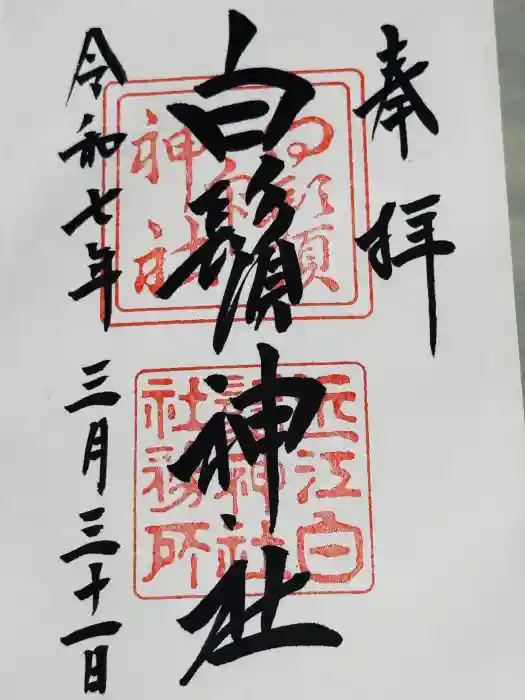 奉拝
白鬚神社
令和七年三月三十一日
白鬚
神社
近江白
鬚神社
社務所